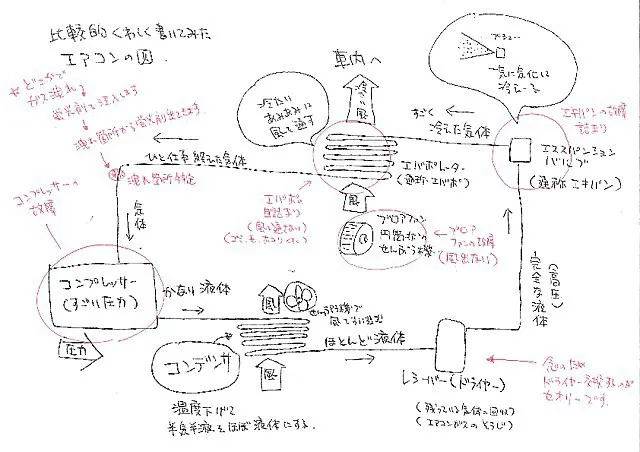 比較的くわしく書いてみた
エアコンの図.
*どこかで
ガス漏れ
蛍光剤で注入します
漏れ箇所から蛍光剤出てきます。
漏れ箇所特定
コンプレッサーの
故障
車内へ
冷たい
風
冷たい
あみあみに
風を通す
ブシュー
一気に気化に
冷えーる
すごく
冷えた気体
エキパンの故障
詰まり
エキスパンション
バルブ
(通称エキパン)
ひと仕事終えた気体
エバポレーター
(通称エバポ)
エバポの
目詰まり
(風が通らない)
風
ブロアファン
円筒状の
せんぷう機
ブロア
ファンの故障
(風出ない)
気体
コンプレッサー
(すごい圧力)
圧力
かなり液体
風
せんぷう機で
コンデンサ
風
ほとんど液体
温度下げて
半気半液をほぼ液体にする.
(高圧)
完全な液体
レシーバー(ドライヤー)
(残っている気体の回収)
念のため
ドライヤー交換するのが
セオリーです。